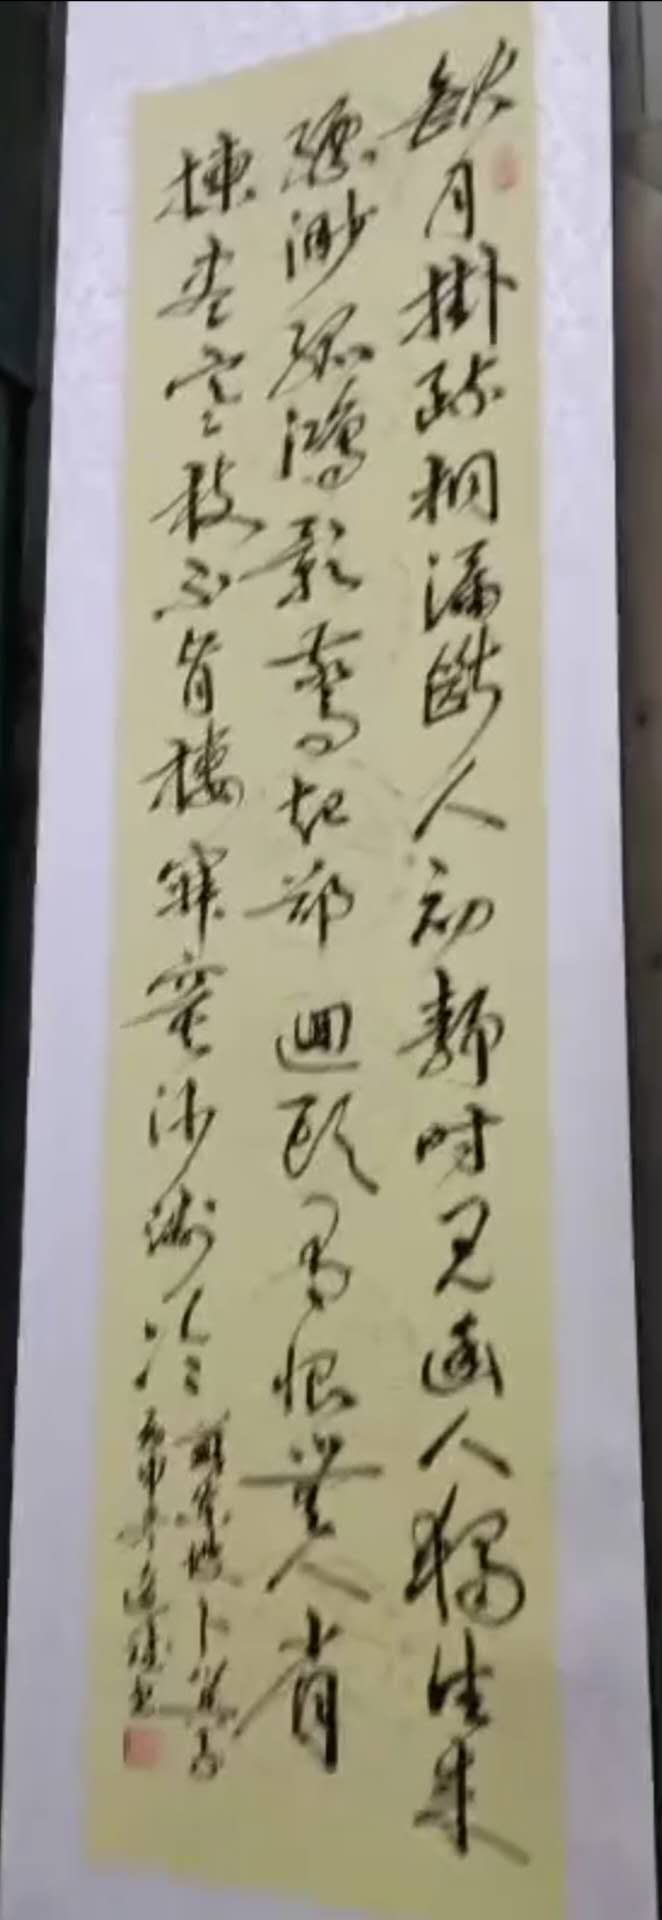 缺月掛疏桐漏斷人初靜時見幽人獨往來
縹渺孤鴻影驚起卻迴頭有恨無人省
揀盡寒枝不肯棲寂寞沙洲冷
蘇東坡卜算子
丙申年